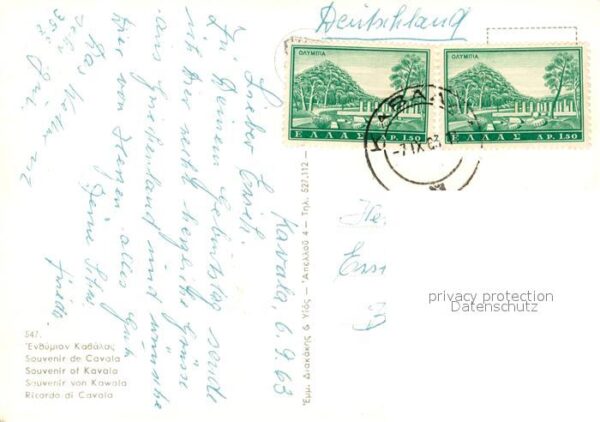 Deutschland
ΟΛΥΜΠΙΑ
ΕΛΛΑΣ ΔΡ. 1.50
ΟΛΥΜΠΙΑ
ΕΛΛΑΣ ΔΡ. 1.50
-7 IX 63
Kavala, 6.9.63
Lieber Ernst!
Zu Deinem Geburtstag sende
ich Dir recht herzliche Grüsse
aus Griechenland und wünsche
Dir von Herzen alles Gute
Deine
He.
Ern
B
privacy protection
Datenschutz
Ἐμμ. Διακάκης & Υἱός – Ἀπελλοῦ 4 – Τηλ. 527.112
547.
Ἐνθύμιον Καβάλας
Souvenir de Cavala
Souvenir of Kavala
Souvenir von Kawala
Ricordo di Cavala